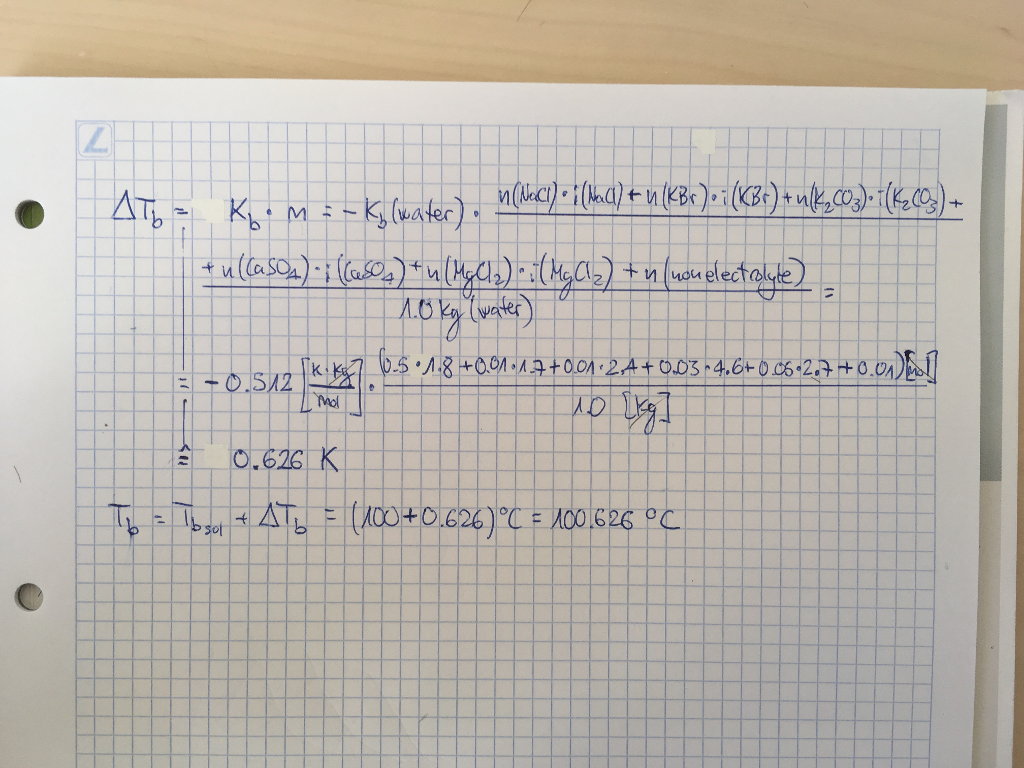 L
ΔT_b = K_b · m = - K_b (water) · n(NaCl)·i(NaCl) + n(KBr)·i(KBr) + n(K₂CO₃)·i(K₂CO₃) +
+ n(CaSO₄)·i(CaSO₄) + n(MgCl₂)·i(MgCl₂) + n(nonelectrolyte) =
1.0 kg (water)
= - 0.512 [K·kg/mol] · (0.5·1.8 + 0.01·1.7 + 0.01·2.4 + 0.03·4.6 + 0.05·2.7 + 0.01) [mol]
1.0 [kg]
≙ 0.626 K
T_b = T_b sol + ΔT_b = (100 + 0.626)°C = 100.626 °C